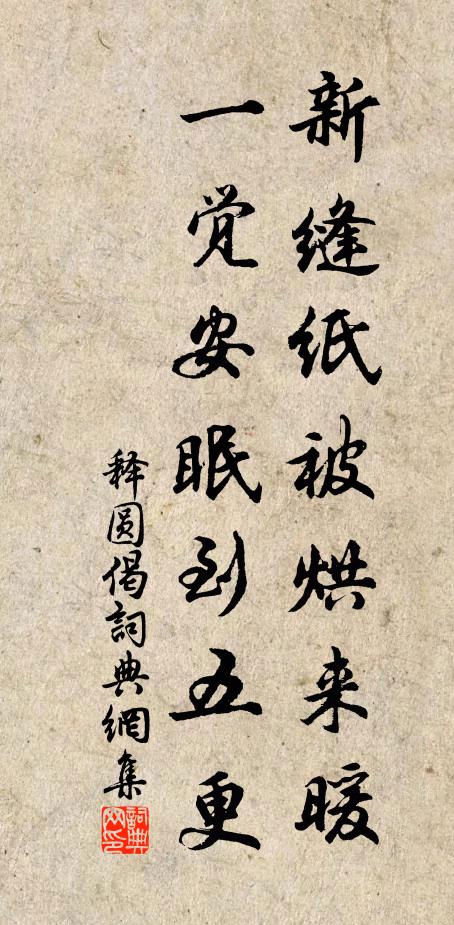 新缝纸被烘来暖
一觉安眠到五更
释圆偈詞典網集
詞典网印